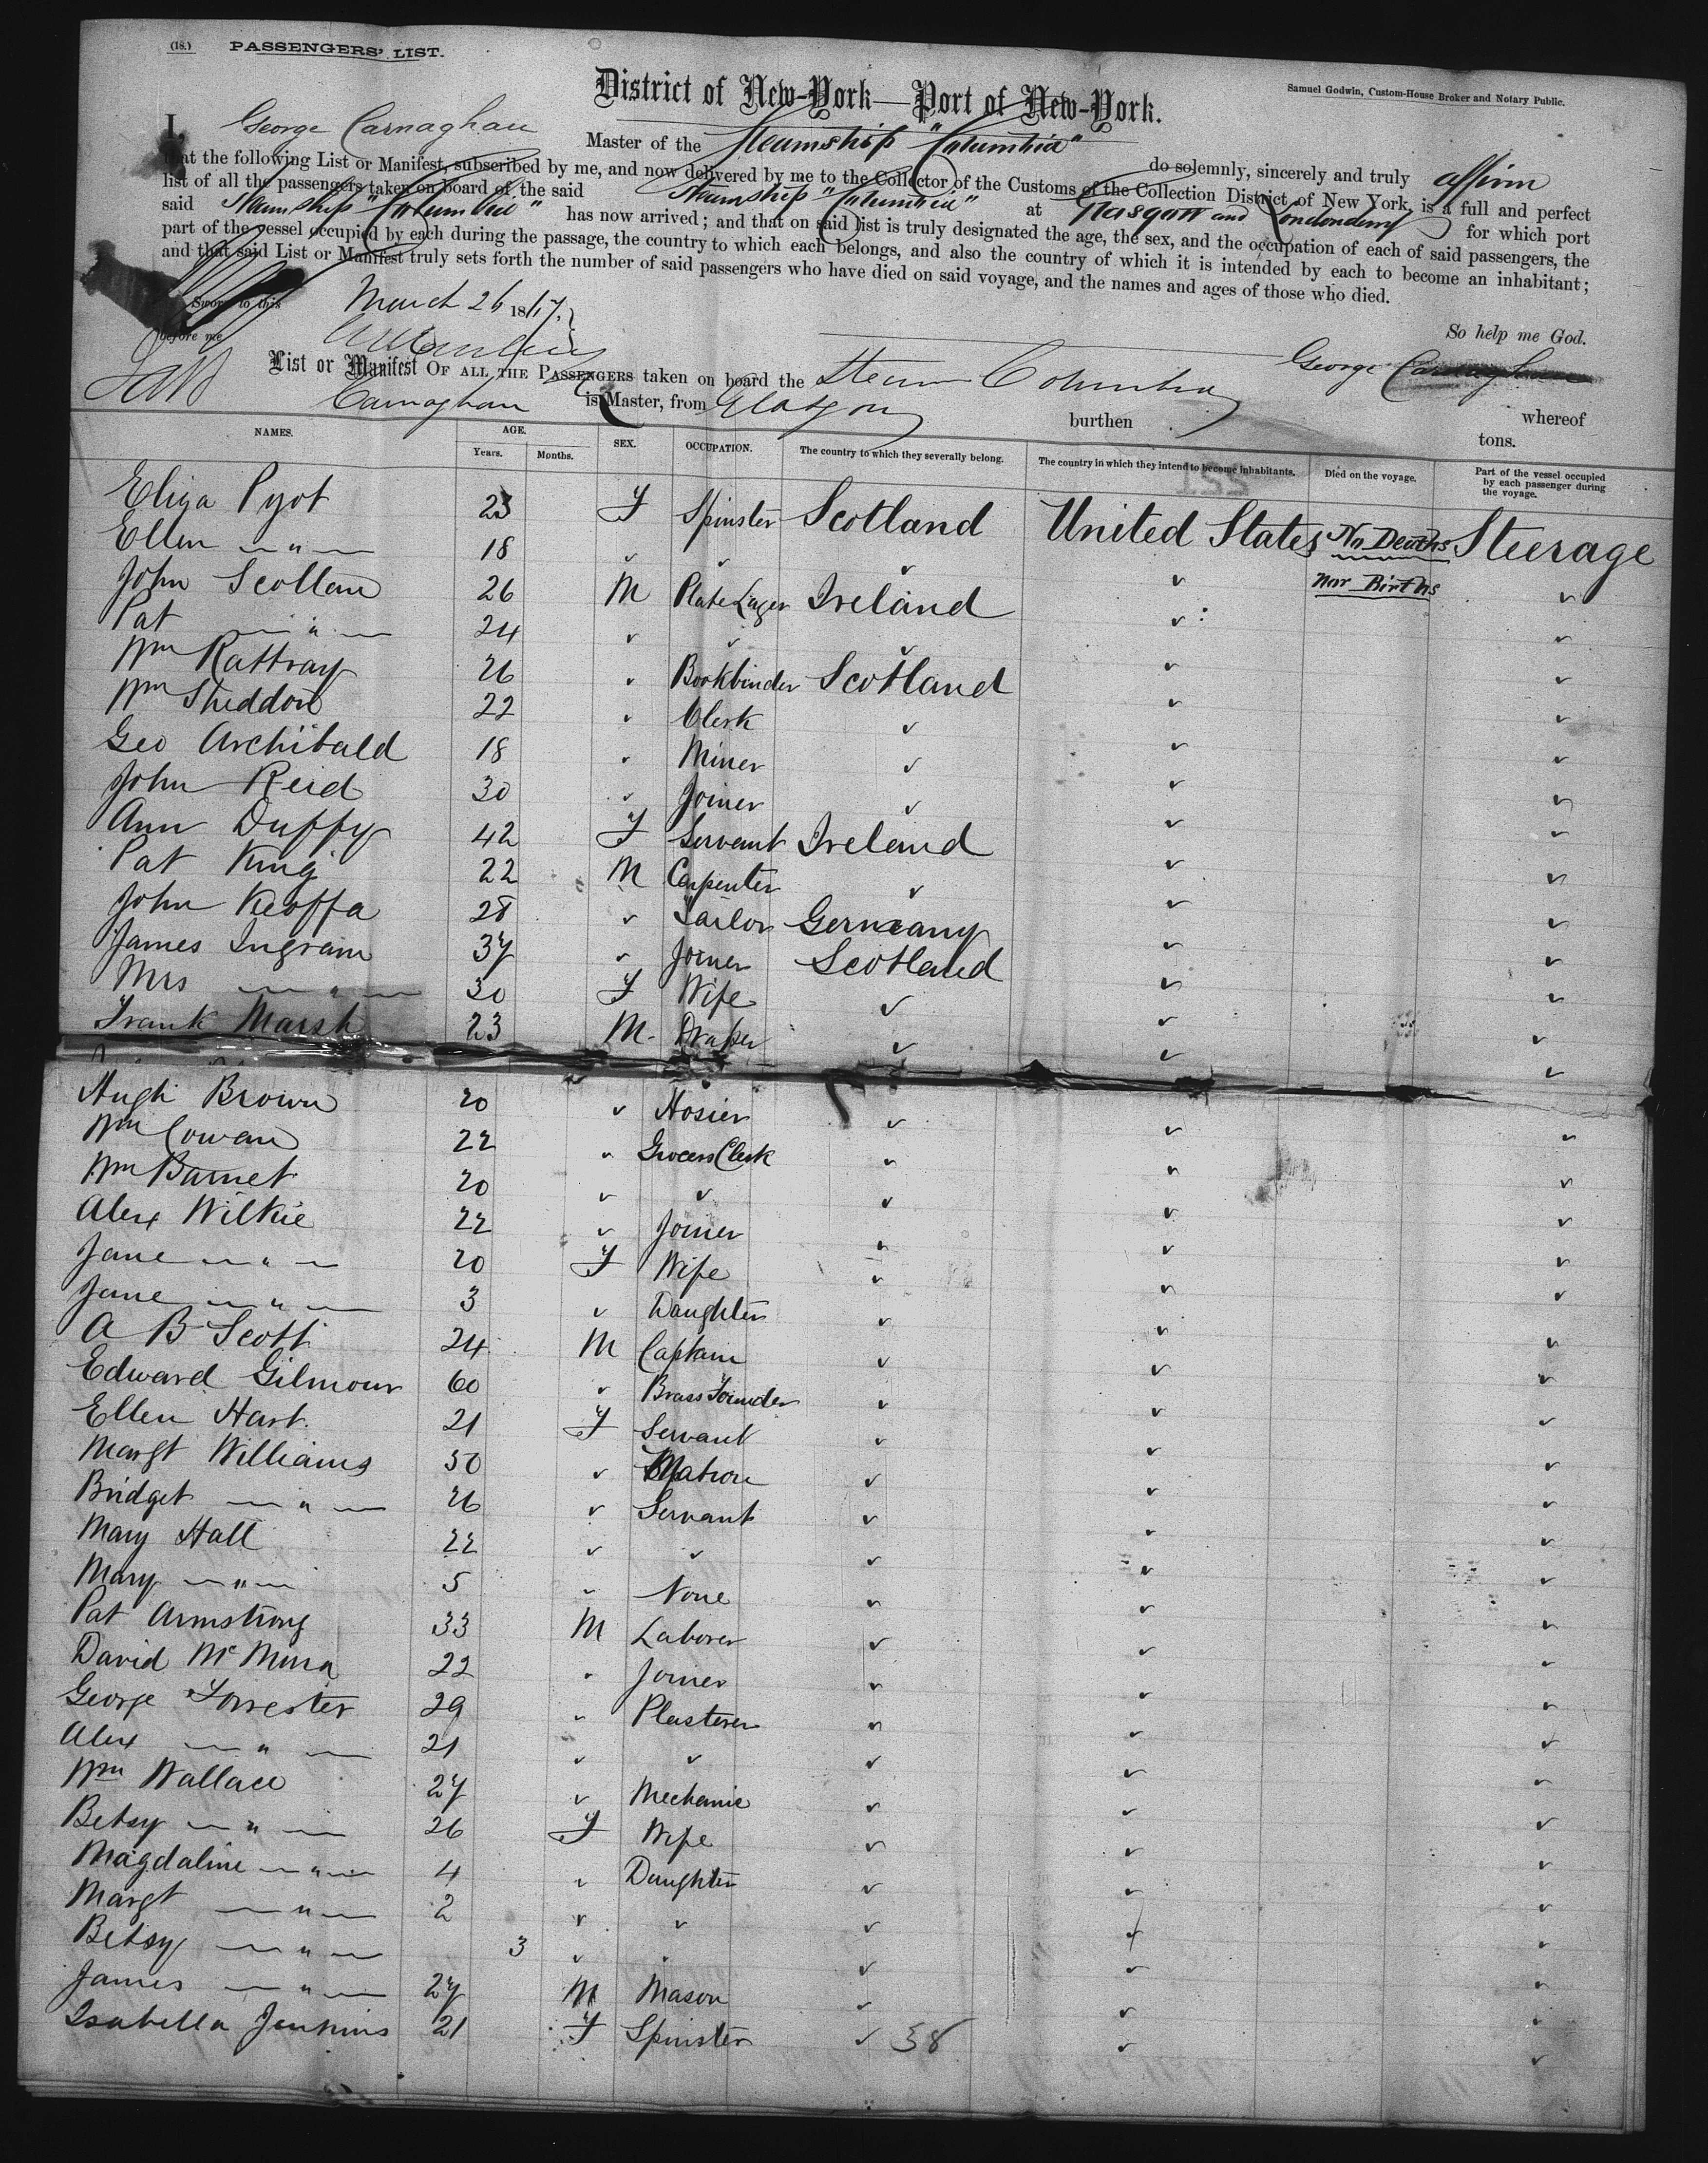 (18.) PASSENGERS' LIST.
Samuel Godwin, Custom-House Broker and Notary Public.
District of New-York—Port of New-York.
I, George Carnaghan Master of the Steamship "Columbia" do solemnly, sincerely and truly affirm
that the following List or Manifest, subscribed by me, and now delivered by me to the Collector of the Customs of the Collection District of New York, is a full and perfect
list of all the passengers taken on board of the said Steamship "Columbia" at Glasgow and Londonderry for which port
said Steamship "Columbia" has now arrived; and that on said list is truly designated the age, the sex, and the occupation of each of said passengers, the
part of the vessel occupied by each during the passage, the country to which each belongs, and also the country of which it is intended by each to become an inhabitant;
and that said List or Manifest truly sets forth the number of said passengers who have died on said voyage, and the names and ages of those who died.
So help me God.
Sworn to this March 26 18
before me
George Carnaghan
List or Manifest OF ALL THE PASSENGERS taken on board the Steam Columbia whereof
Carnaghan is Master, from Glasgow burthen tons.
NAMES. AGE. Years. Months. SEX. OCCUPATION. The country to which they severally belong. The country in which they intend to become inhabitants. Died on the voyage. Part of the vessel occupied by each passenger during the voyage.
Eliza Pyot 23 F Spinster Scotland United States No Deaths Steerage
Ellen — " — 18 ✓ ✓ ✓ ✓ Nor Births ✓
John Scollan 26 M Plate Layer Ireland ✓ ✓
Pat — " — 24 ✓ ✓ ✓ ✓ ✓
Wm Rattray 26 ✓ Bookbinder Scotland ✓ ✓
Wm Sheddon 22 ✓ Clerk ✓ ✓ ✓
Geo Archibald 18 ✓ Miner ✓ ✓ ✓
John Reid 30 ✓ Joiner ✓ ✓ ✓
Ann Duffy 42 F Servant Ireland ✓ ✓
Pat King 22 M Carpenter ✓ ✓ ✓
John Keoffa 28 ✓ Tailor Germany ✓ ✓
James Ingram 37 ✓ Joiner Scotland ✓ ✓
Mrs — " — 30 F Wife ✓ ✓ ✓
Frank Marsh 23 M. Draper ✓ ✓ ✓
Hugh Brown 20 ✓ Hosier ✓ ✓ ✓
Wm Cowan 22 ✓ Grocers Clerk ✓ ✓ ✓
Wm Barnet 20 ✓ ✓ ✓ ✓ ✓
Alex Wilkie 22 ✓ Joiner ✓ ✓ ✓
Jane — " — 20 F Wife ✓ ✓ ✓
Jane — " — 3 ✓ Daughter ✓ ✓ ✓
A B Scott 24 M Captain ✓ ✓ ✓
Edward Gilmour 60 ✓ Brass Founder ✓ ✓ ✓
Ellen Hart. 21 F Servant ✓ ✓ ✓
Margt Williams 50 ✓ Matron ✓ ✓ ✓
Bridget — " — 26 ✓ Servant ✓ ✓ ✓
Mary Hall 22 ✓ ✓ ✓ ✓ ✓
Mary — " — 5 ✓ None ✓ ✓ ✓
Pat Armstrong 33 M Laborer ✓ ✓ ✓
David 22 ✓ Joiner ✓ ✓ ✓
George Forrester 29 ✓ Plasterer ✓ ✓ ✓
Alex — " — 21 ✓ ✓ ✓ ✓ ✓
Wm Wallace 27 ✓ Mechanic ✓ ✓ ✓
Betsy — " — 26 F Wife ✓ ✓ ✓
Magdaline — " — 4 ✓ Daughter ✓ ✓ ✓
Margt — " — 2 ✓ ✓ ✓ ✓ ✓
Betsy — " — 3 ✓ ✓ ✓ ✓ ✓
James — " — 27 M Mason ✓ ✓ ✓
Isabella Jenkins 21 F Spinster ✓ 38 ✓ ✓